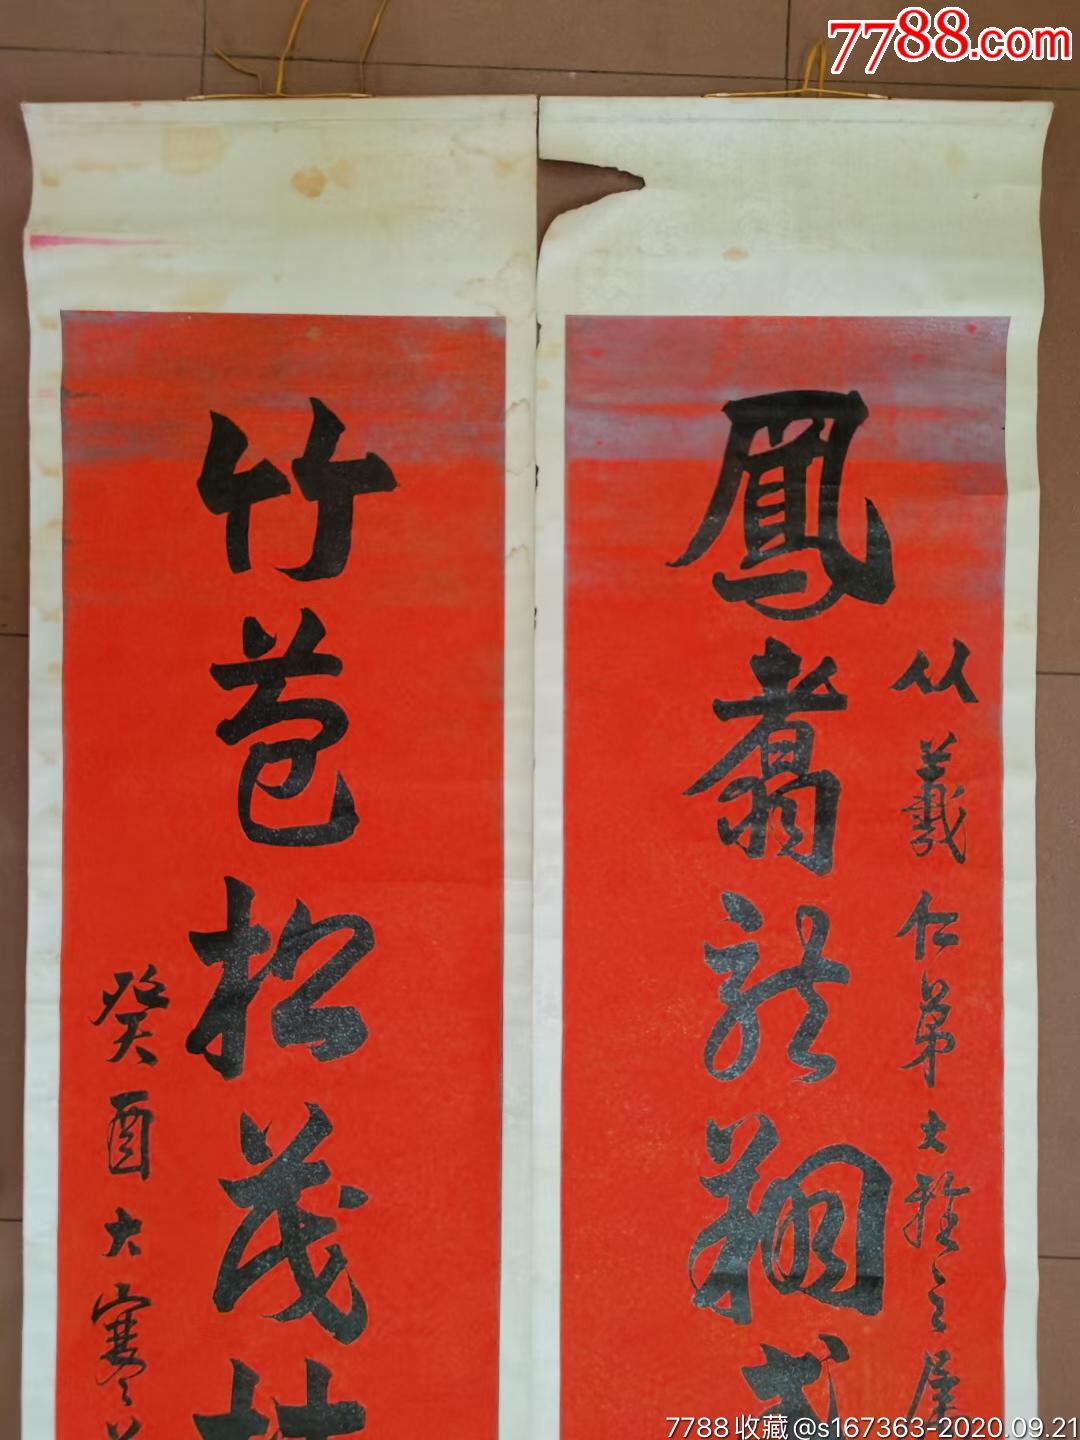 7788.com
鳳翥龍翔式
从羲仁弟大雅之屬
竹苞松茂
癸酉大寒
7788收藏@s167363-2020.09.21